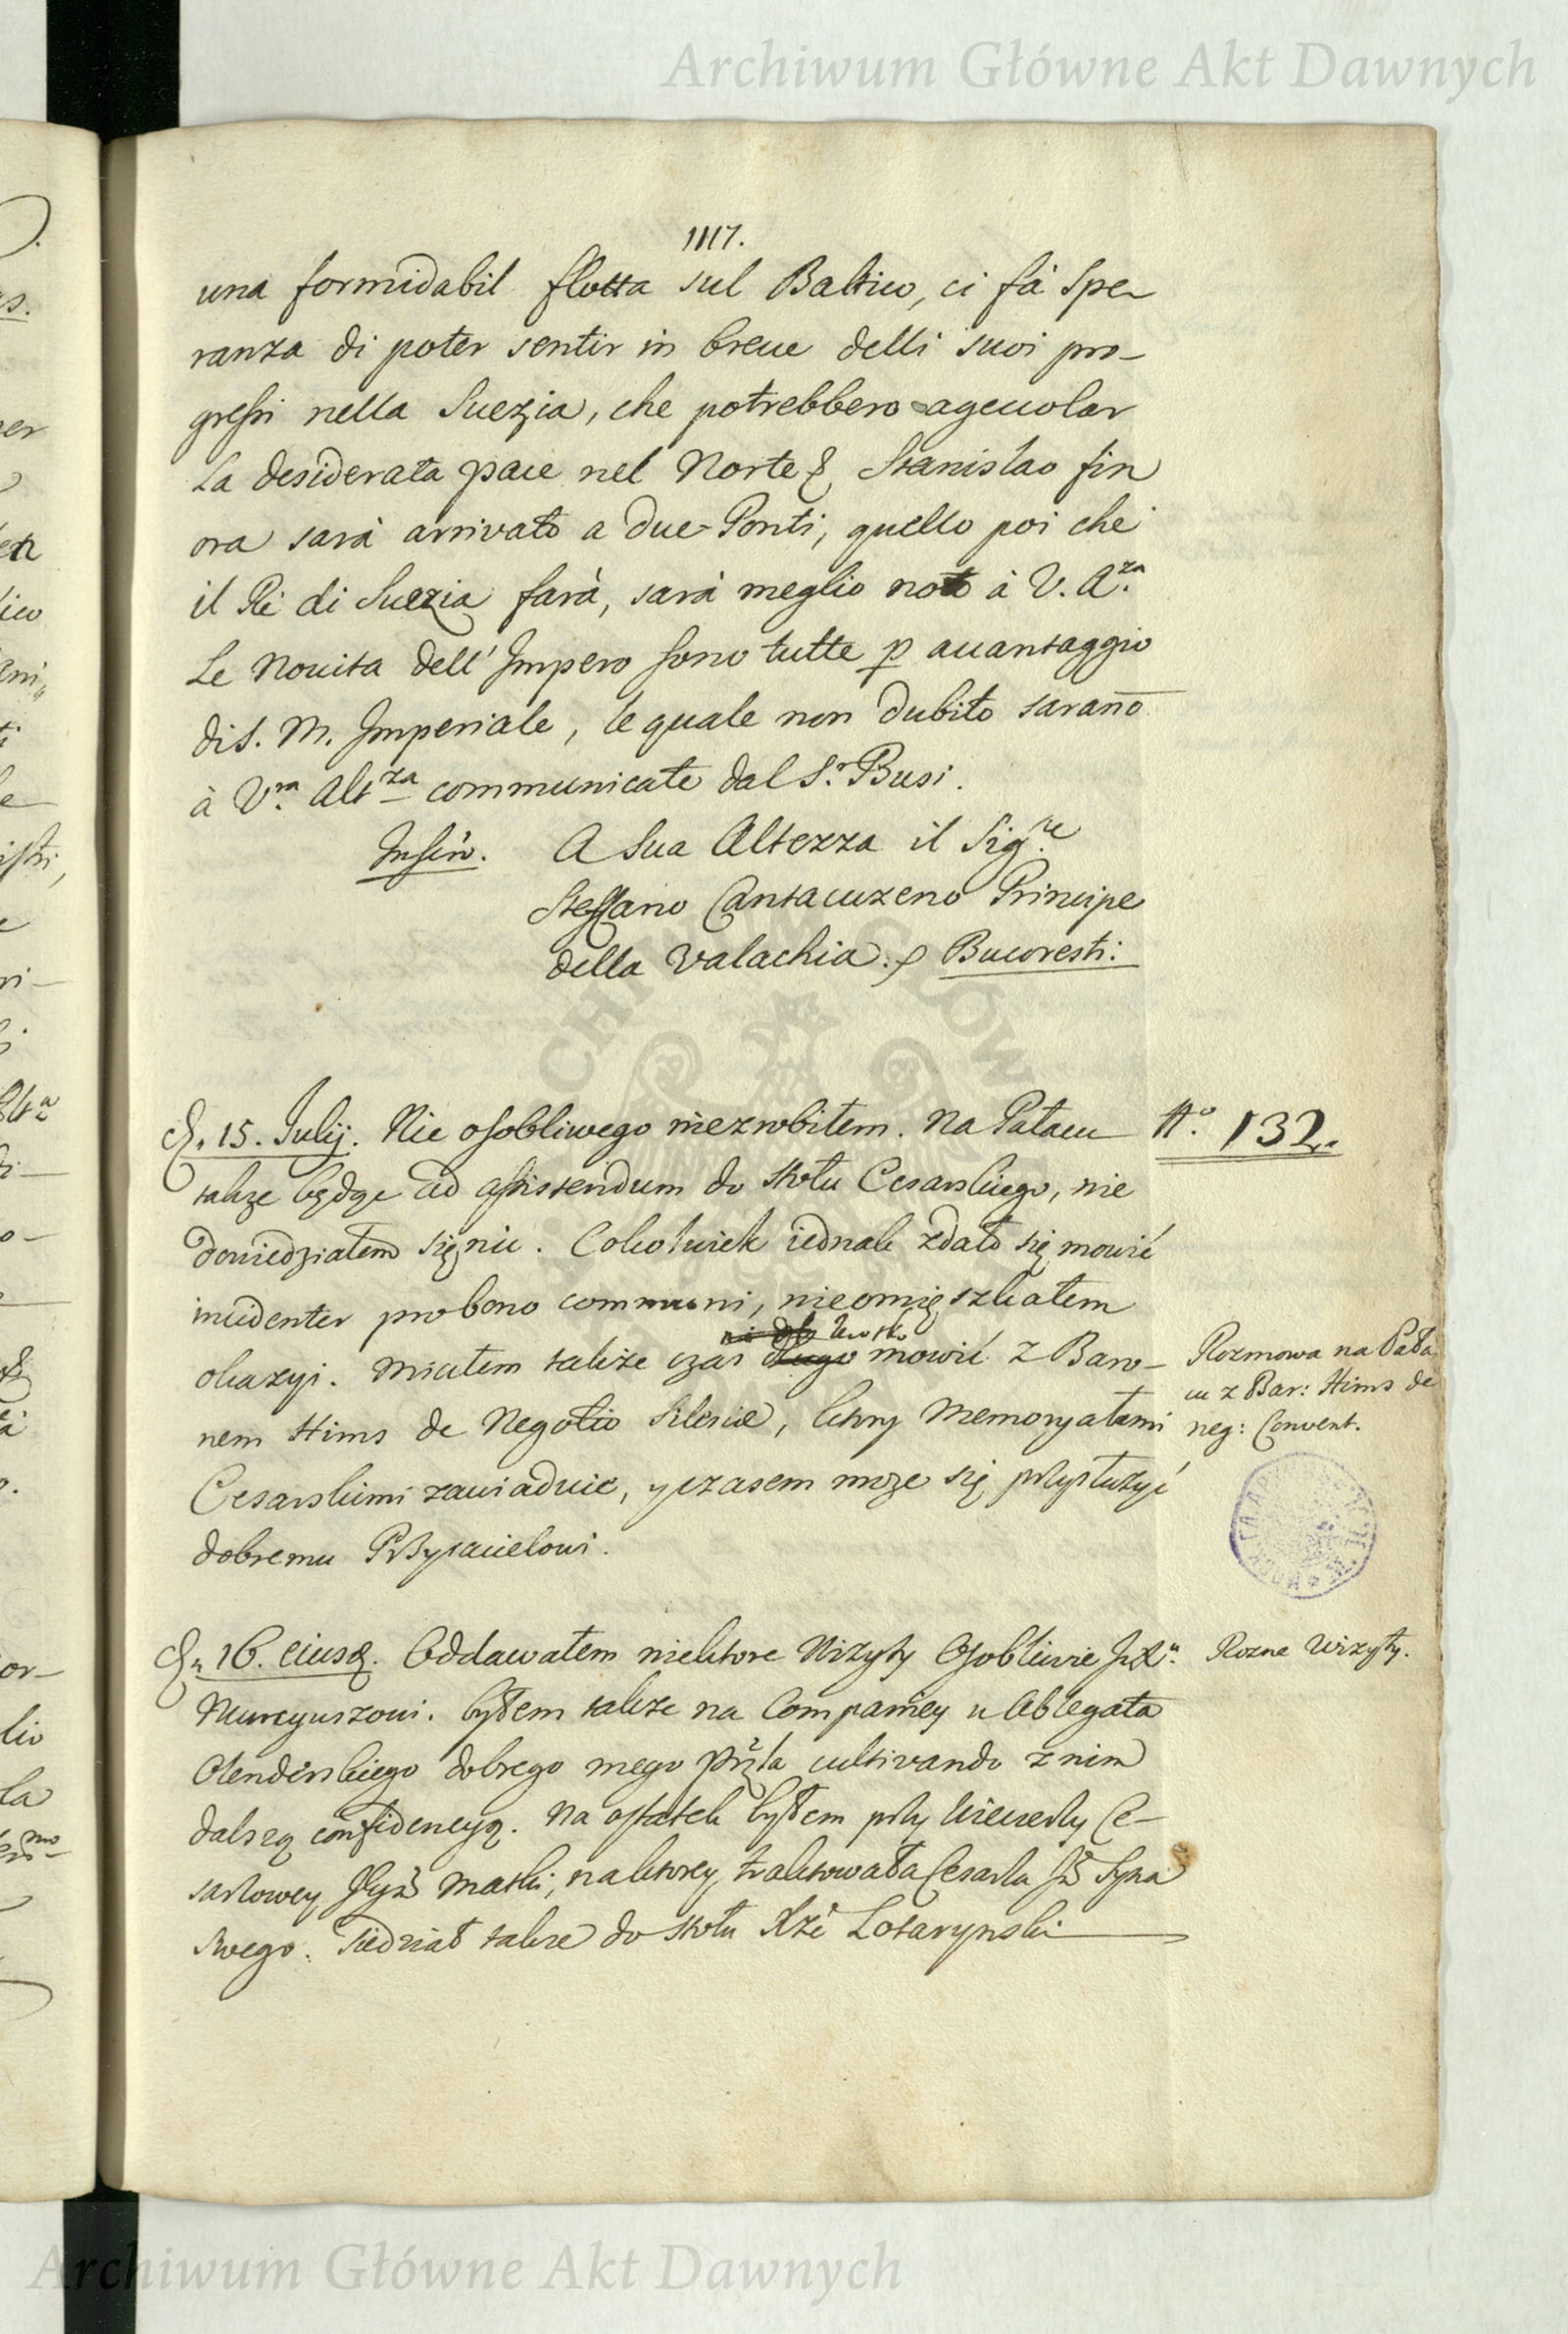 Archiwum Główne Akt Dawnych
1117.
una formidabil flotta sul Baltico, ci fà spe-
ranza di poter sentir in breue delli suoi pro-
gressi nella Suezia, che potrebbero ageuolar
la desiderata pace nel Norte &. Stanislao fin
ora sarà arrivato a Due-Ponti, quello poi che
il Rè di Suezia farà, sarà meglio noto à V. A.za
Le Nouita dell' Impero sono tutte p auantaggio
di S. M. Imperiale, le quale non dubito saran̅o
à V.ra Alt.za communicate dal S.r Busi.
A Sua Altezza il Sig.re
Steffano Cantacuzeno Principe
della Valachia. Bucoresti:
D. 15. Julij. Nic osobliwego niezrobiłem. Na Pałacu
N.o 132.
także będąc ad assistendum do stołu Cesarskiego, nie
dowiedziałem się nic. Cokolwiek iednak zdało się mowić
incidenter pro bono communi, nieomięszkałem
okazyi. Miałem także czas długo mowić z Baro-
nem Hims de Negotio Silesiæ, ktory Memoryałami
Cesarskimi zawiaduie, y czasem może się przysłużyć
dobremu Przyiacielowi.
Rozmowa na Pała
cu z Bar: Hims de
neg: Convent.
D. 16. eiusd. Oddawałem niektore Wizyty Osobliwie
Nuncyuszowi. byłem także na Companiey u Ablegata
Olenderskiego dobrego mego Przła cultivando z nim
dalszą confidencyą. Na ostatek byłem przy Wieczerzy Ce-
sarzowey Jeyż Matki, na ktorey traktowała Cesarza Jż Syna
swego. Siedział także do stołu Xże Lotarynski
Rozne Wizyty.
Archiwum Główne Akt Dawnych